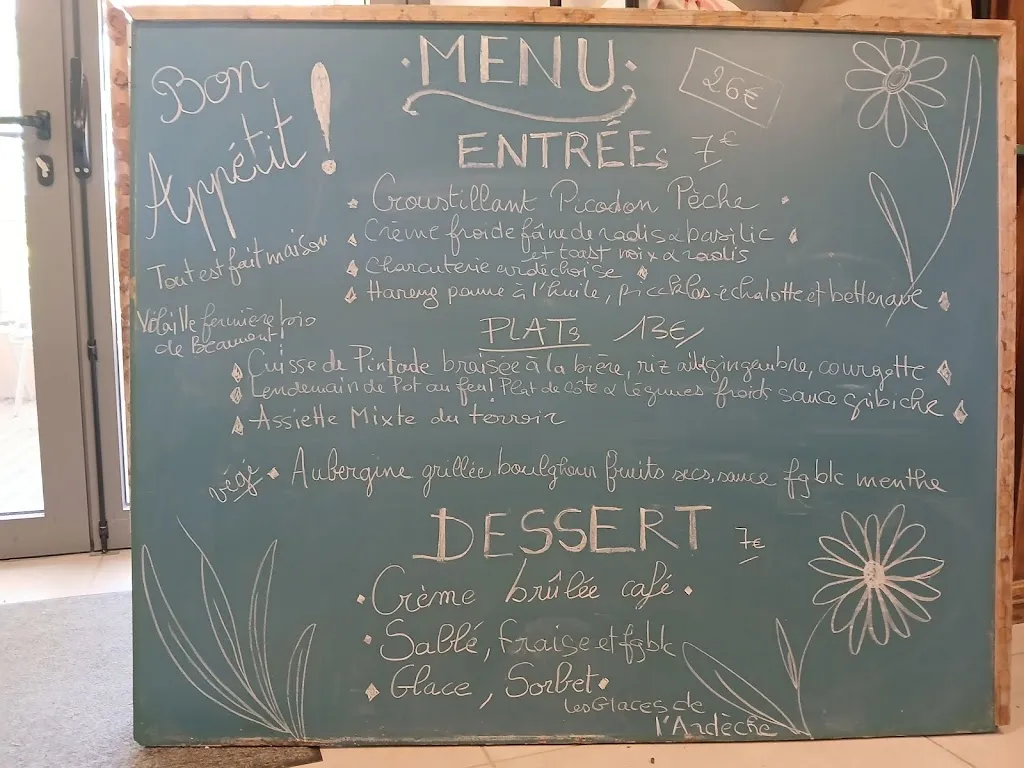 Bon
Appétit !
Tout est fait maison
Volaille fermière bio
de Beaumont !
MENU
26€
ENTRÉES 7€
Croustillant Picodon Pêche
Crème froide fâne de radis & basilic
et toast noix & radis
Charcuterie ardéchoise
Hareng pomme à l'huile, pickles échalotte et betterave
PLATS 13€
Cuisse de Pintade braisée à la bière, riz ail gingembre, courgette
Lendemain de Pot au feu! Plat de côte & légumes froids sauce gribiche
Assiette Mixte du terroir
végé Aubergine grillée boulghour fruits secs, sauce fgblc menthe
DESSERT 7€
Crème brûlée café
Sablé, fraise et fgblc
Glace, Sorbet
Les Glaces de
l'Ardèche